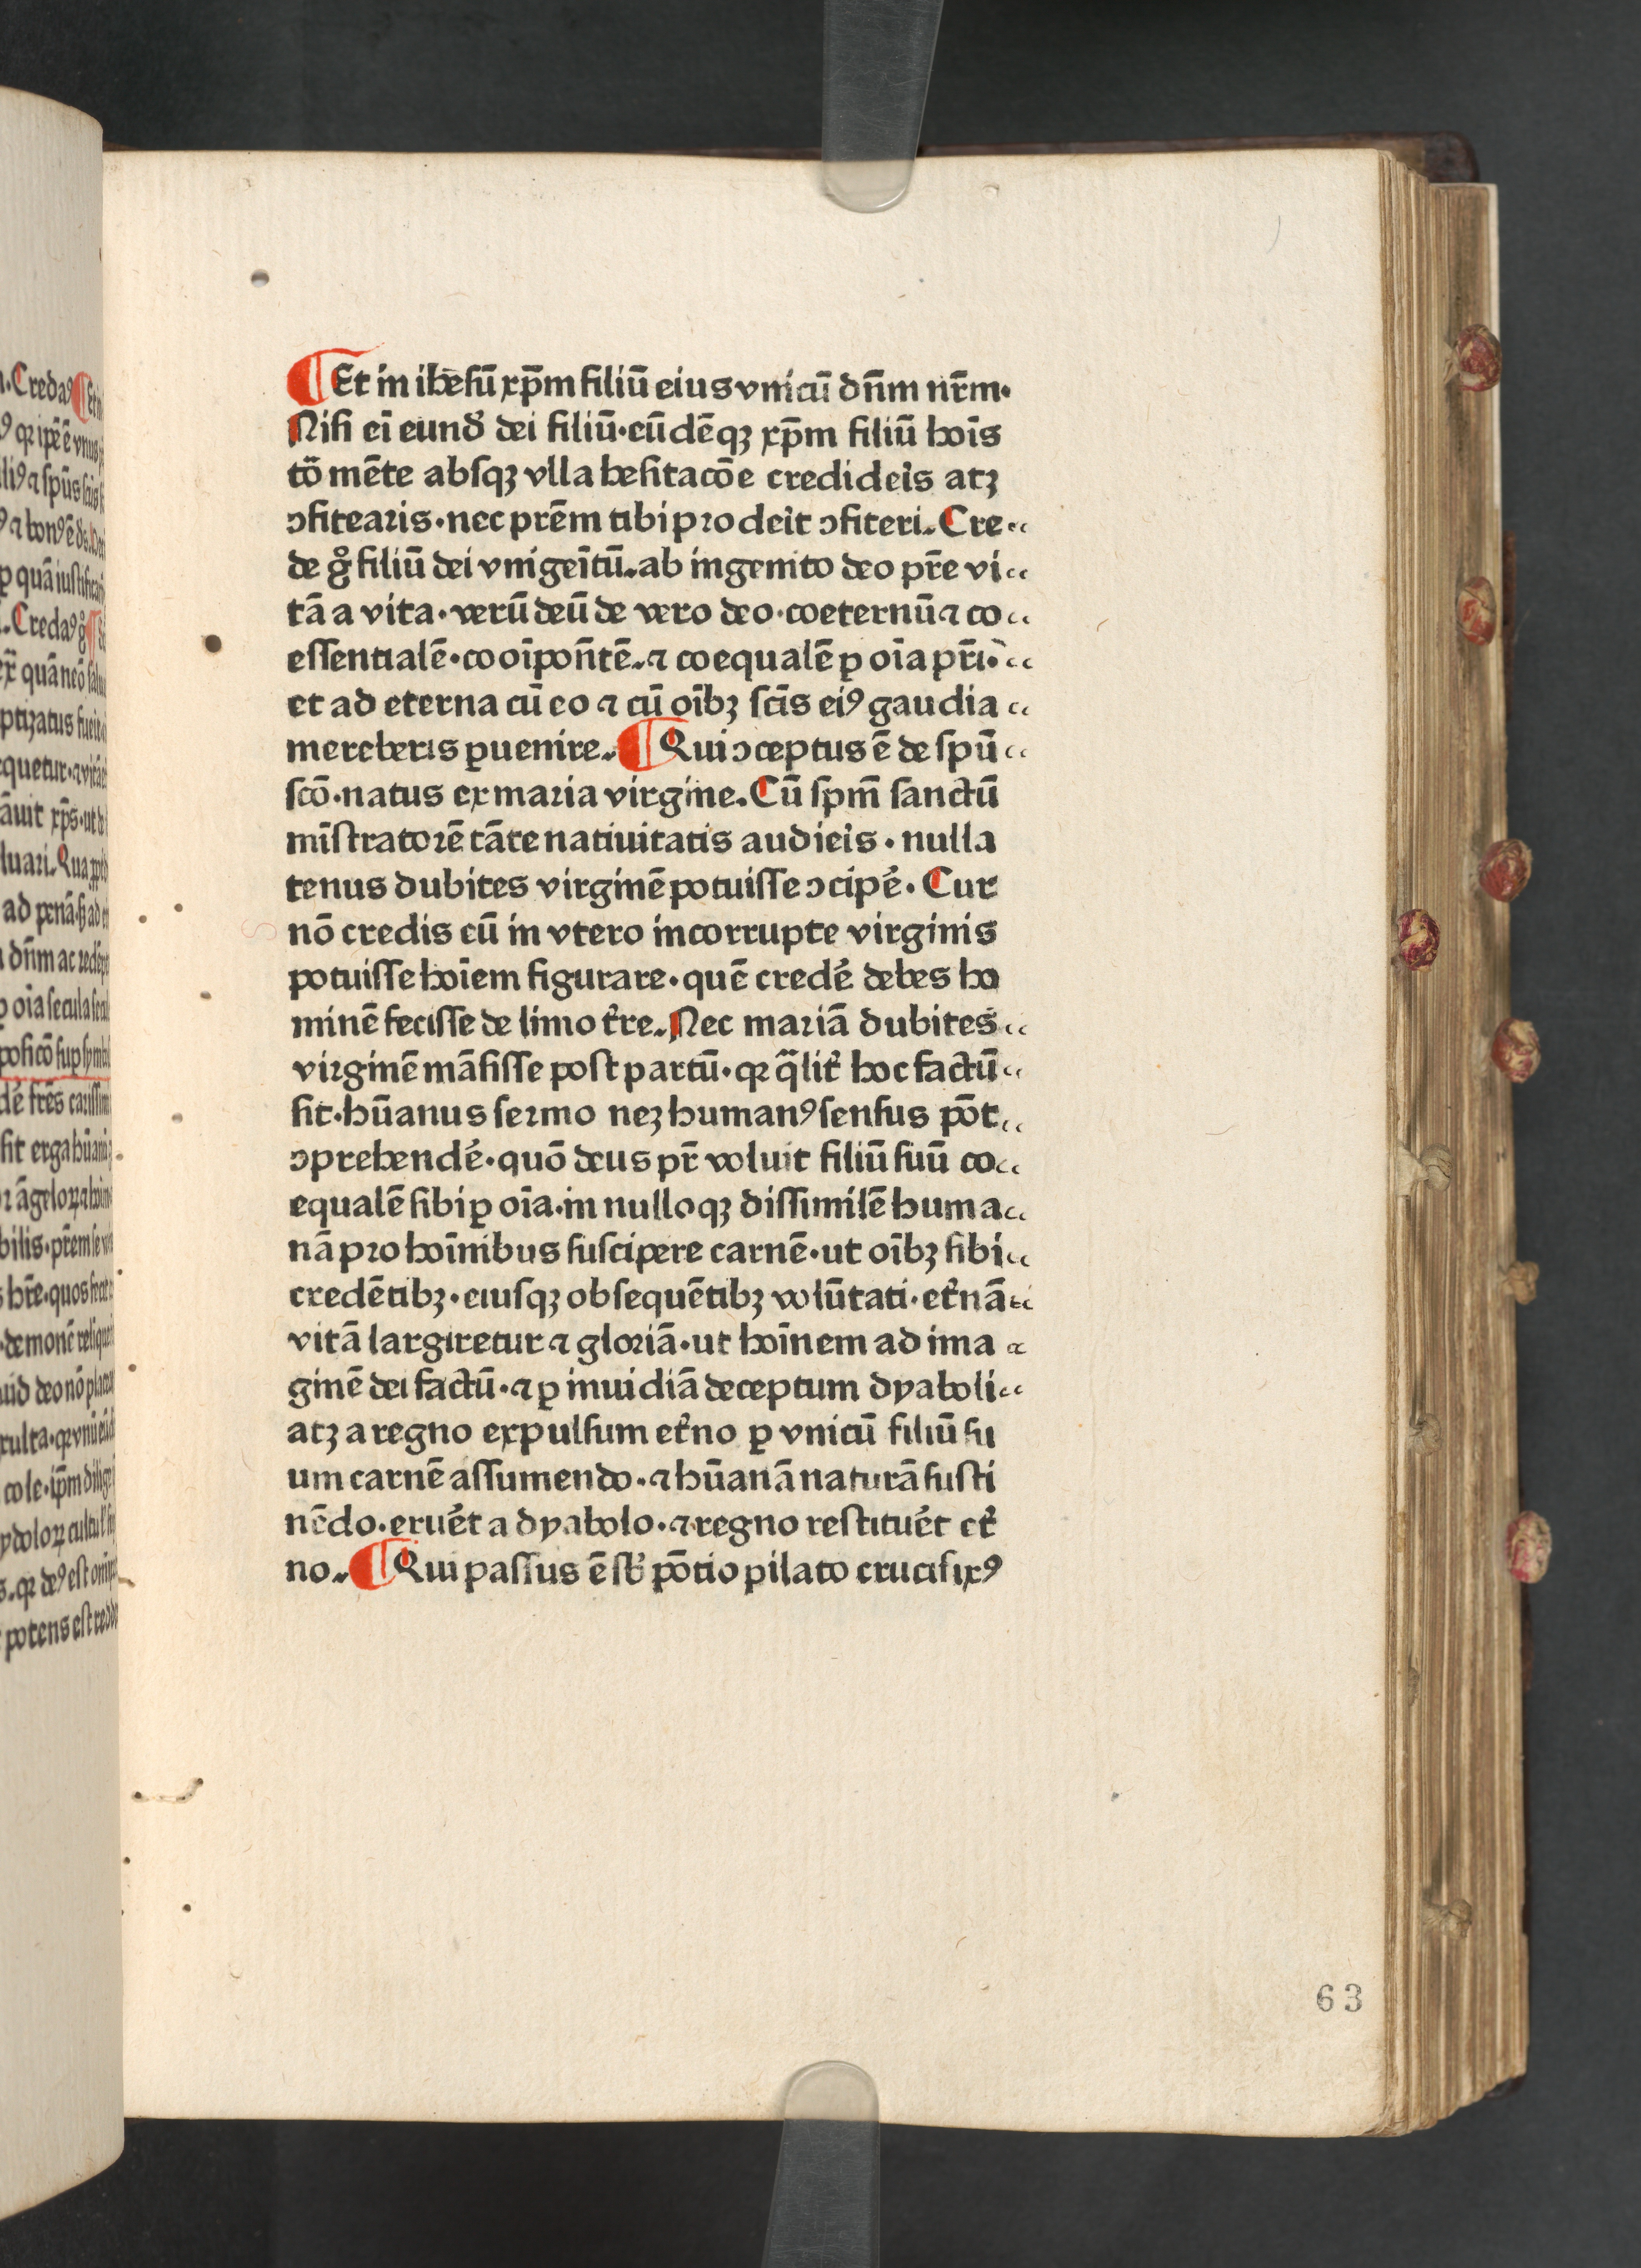 ¶Et in ihesū xp̄m filiū eius vnicū dn̄m nr̄m·
Nisi eī eund̄ dei filiū·eūdēqꝫ xp̄m filiū hoīs
tō mēte absqꝫ vlla hesitacōe credideīs atꝫ
ↄfitearis·nec prēm tibi prodeīt ↄfiteri. Cre
de gͦ filiū dei vnigeītū.ab ingenito deo pr̄e vi
tā a vita·verū deū de vero deo·coeternū ⁊ co
essentialē·cooīpon̄tē.⁊ coequalē ꝑ oīa pr̄i·
et ad eterna cū eo ⁊ cū oībꝫ sc̄is eiꝰ gaudia
mereberis ꝑuenire. ¶Qui ↄceptus ē de spū
scō·natus ex maria virgine. Cū spm̄ sanctū
mīstratorē tāte natiuitatis audieīs·nulla
tenus dubites virginē potuisse ↄcipe᷑·Cur
nō credis eū in vtero incorrupte virginis
potuisse hoīem figurare·quē crede᷑ debes ho
minē fecisse de limo tr̄e. Nec mariā dubites
virginē māsisse post partū·qꝛ q̄lit᷑ hoc factū
sit·hūanus sermo neꝫ humanꝰ sensus pōt
ↄprehende᷑·quō deus pr̄ voluit filiū suū co
equalē sibi ꝑ oīa·in nulloqꝫ dissimilē huma
nā pro hoīnibus suscipere carnē·ut oībꝫ sibi
credētibꝫ·eiusqꝫ obsequētibꝫ volūtati·et᷑nā
vitā largiretur ⁊ gloriā·ut hoīnem ad ima
ginē dei factū·⁊ ꝑ inuidiā deceptum dyaboli
atꝫ a regno expulsum et᷑no ꝑ vnicū filiū su
um carnē assumendo·⁊ hūanā naturā susti
nēdo·erue᷑t a dyabolo·⁊ regno restitue᷑t et᷑
no. ¶Qui passus ē sb᷑ pōtio pilato crucifixꝰ
63